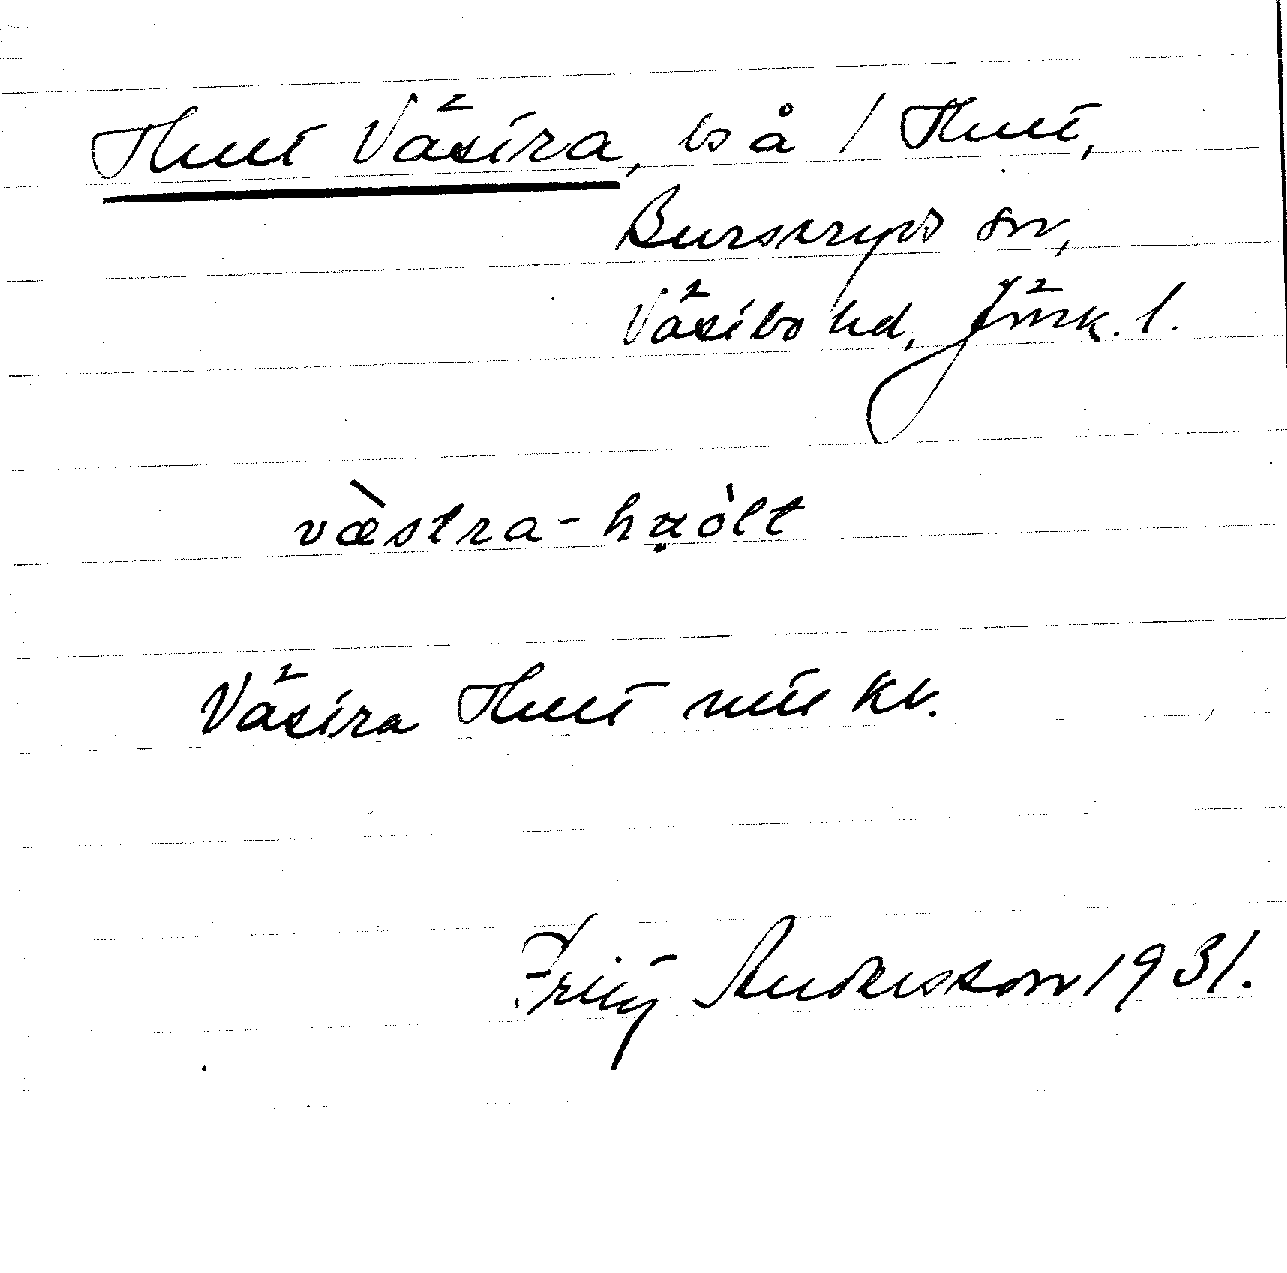 Hult Västra, bs å 1 Hult,
Burseryds sn,
Västbo hd, Jönk. l.
væ̀stra-hu̯òlt
Västra Hult mtl kv.
Fritz Andersson 1931.